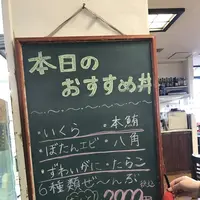 本日の
おすすめ丼
・いくら ・本鮪
・ぼたんエビ ・八角
・ずわいがに ・たらこ
6種類ぜ〜んぶ